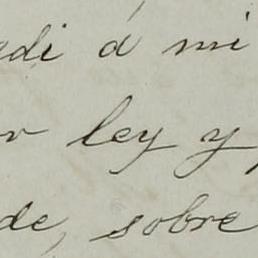 edi á mi
or ley y
de, sobre